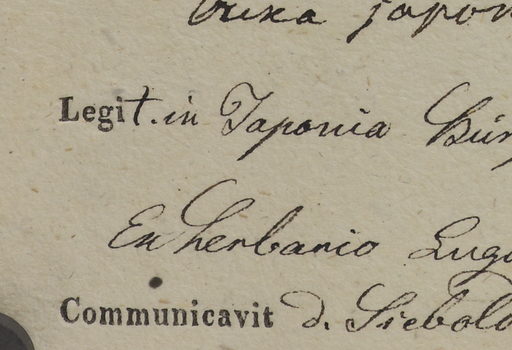 japon
Legit. in Japonia Bür
Ex herbario Lugd
Communicavit d. Siebold